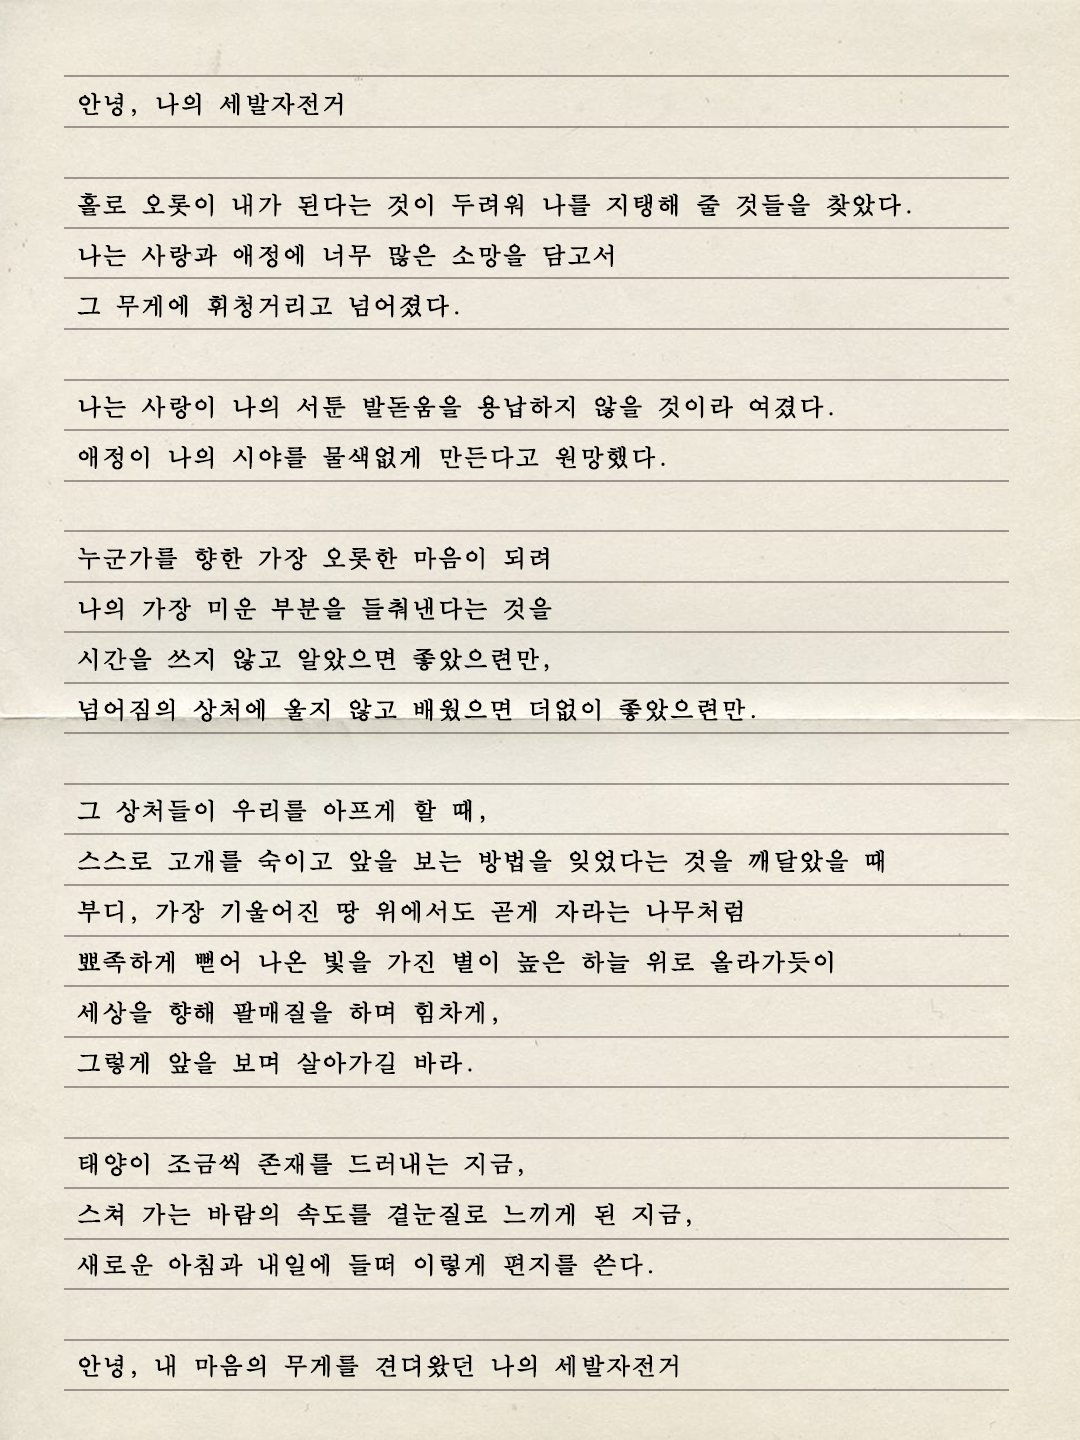 안녕, 나의 세발자전거
홀로 오롯이 내가 된다는 것이 두려워 나를 지탱해 줄 것들을 찾았다.
나는 사랑과 애정에 너무 많은 소망을 담고서
그 무게에 휘청거리고 넘어졌다.
나는 사랑이 나의 서툰 발돋움을 용납하지 않을 것이라 여겼다.
애정이 나의 시야를 물색없게 만든다고 원망했다.
누군가를 향한 가장 오롯한 마음이 되려
나의 가장 미운 부분을 들춰낸다는 것을
시간을 쓰지 않고 알았으면 좋았으련만,
넘어짐의 상처에 울지 않고 배웠으면 더없이 좋았으련만.
그 상처들이 우리를 아프게 할 때,
스스로 고개를 숙이고 앞을 보는 방법을 잊었다는 것을 깨달았을 때
부디, 가장 기울어진 땅 위에서도 곧게 자라는 나무처럼
뾰족하게 뻗어 나온 빛을 가진 별이 높은 하늘 위로 올라가듯이
세상을 향해 팔매질을 하며 힘차게,
그렇게 앞을 보며 살아가길 바라.
태양이 조금씩 존재를 드러내는 지금,
스쳐 가는 바람의 속도를 곁눈질로 느끼게 된 지금,
새로운 아침과 내일에 들떠 이렇게 편지를 쓴다.
안녕, 내 마음의 무게를 견뎌왔던 나의 세발자전거